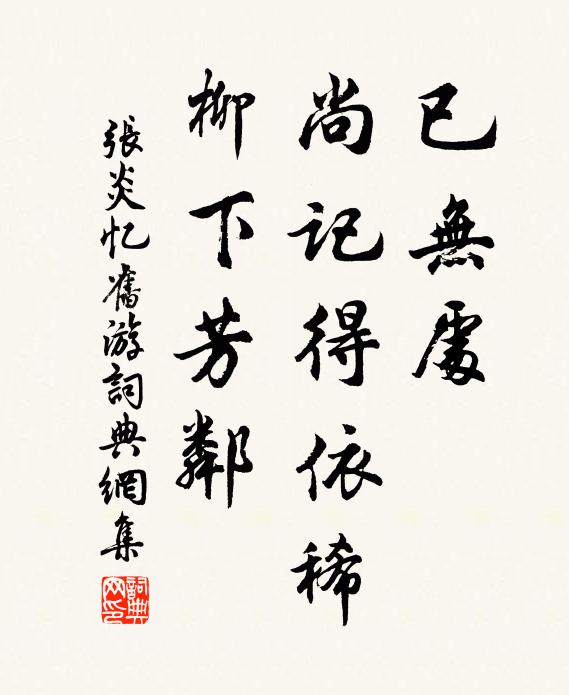 已無處
尚記得依稀
柳下芳鄰
張炎忆舊游詞典網集
詞典網印